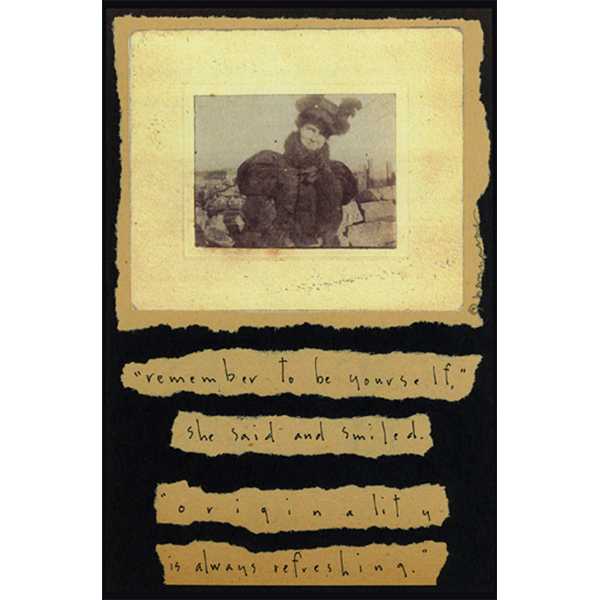 "remember to be yourself,"
she said and smiled.
"originality
is always refreshing."